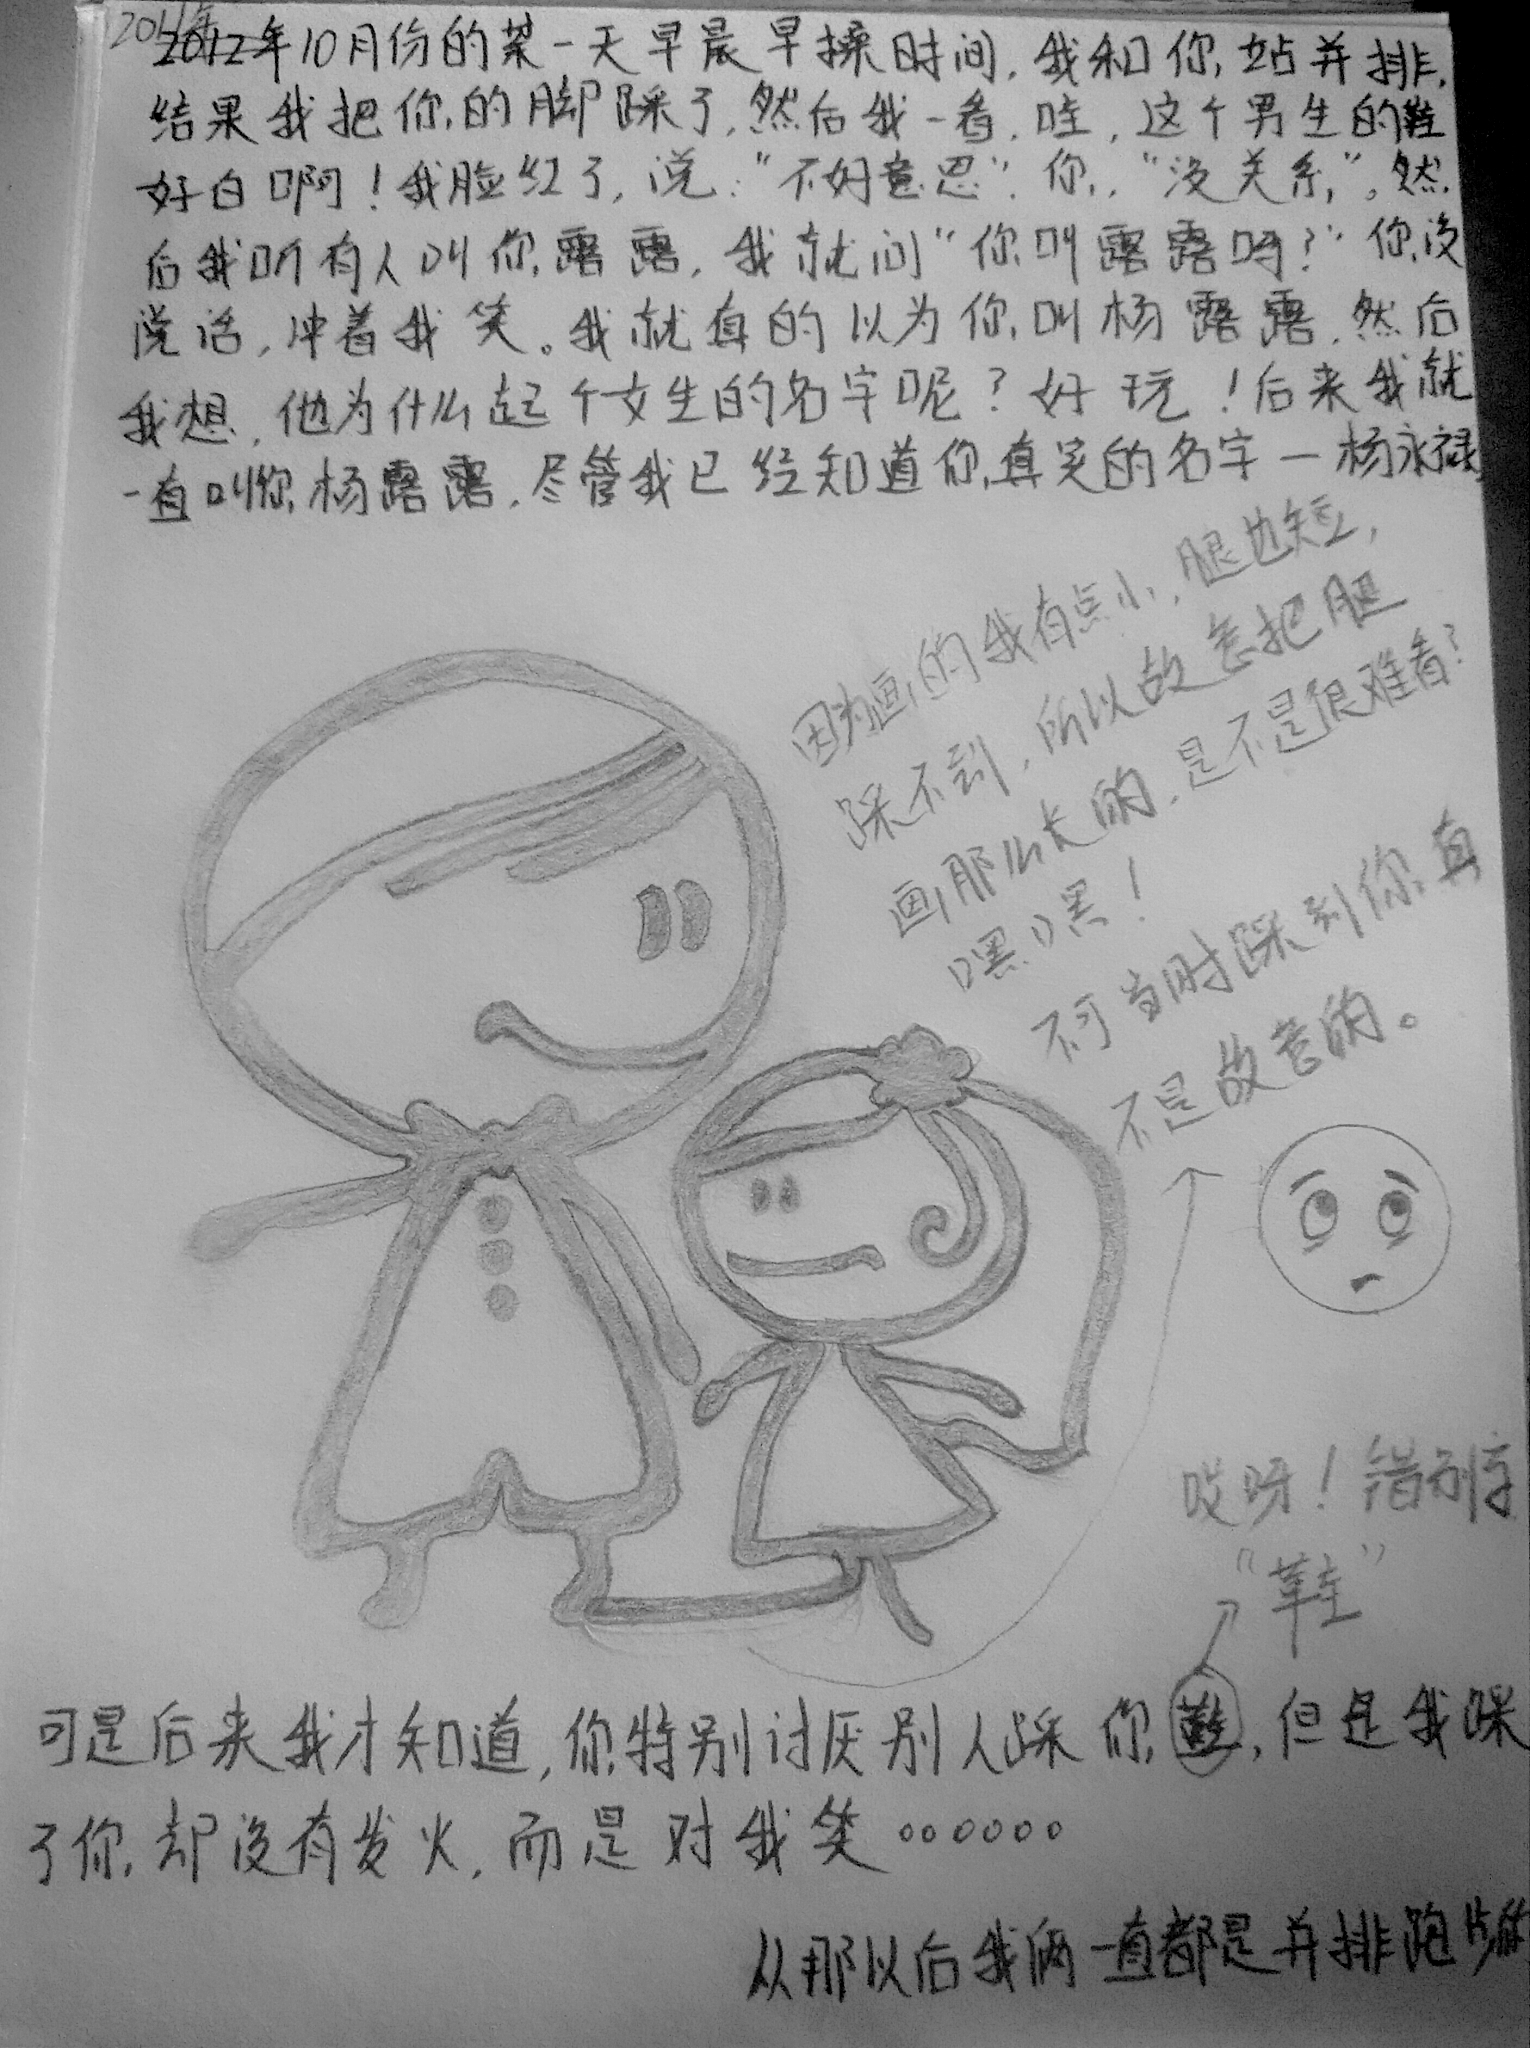 2011年
2012年10月份的某一天早晨早操时间,我和你站并排,
结果我把你的脚踩了,然后我一看,哇,这个男生的鞋
好白啊!我脸红了,说:"不好意思".你,"没关系",然
后我听有人叫你露露,我就问"你叫露露吗?"你没
说话,冲着我笑。我就真的以为你叫杨露露,然后
我想,他为什么起个女生的名字呢?好玩!后来我就
一直叫你杨露露,尽管我已经知道你真实的名字—杨永禄
因为画的我有点小,腿也短,
踩不到,所以故意把腿
画那么长的,是不是很难看?
嘿嘿!
不可当时踩到你真
不是故意的。
哎呀!错别字
"鞋"
可是后来我才知道,你特别讨厌别人踩你鞋,但是我踩
了你却没有发火,而是对我笑。。。。。。
从那以后我俩一直都是并排跑步的